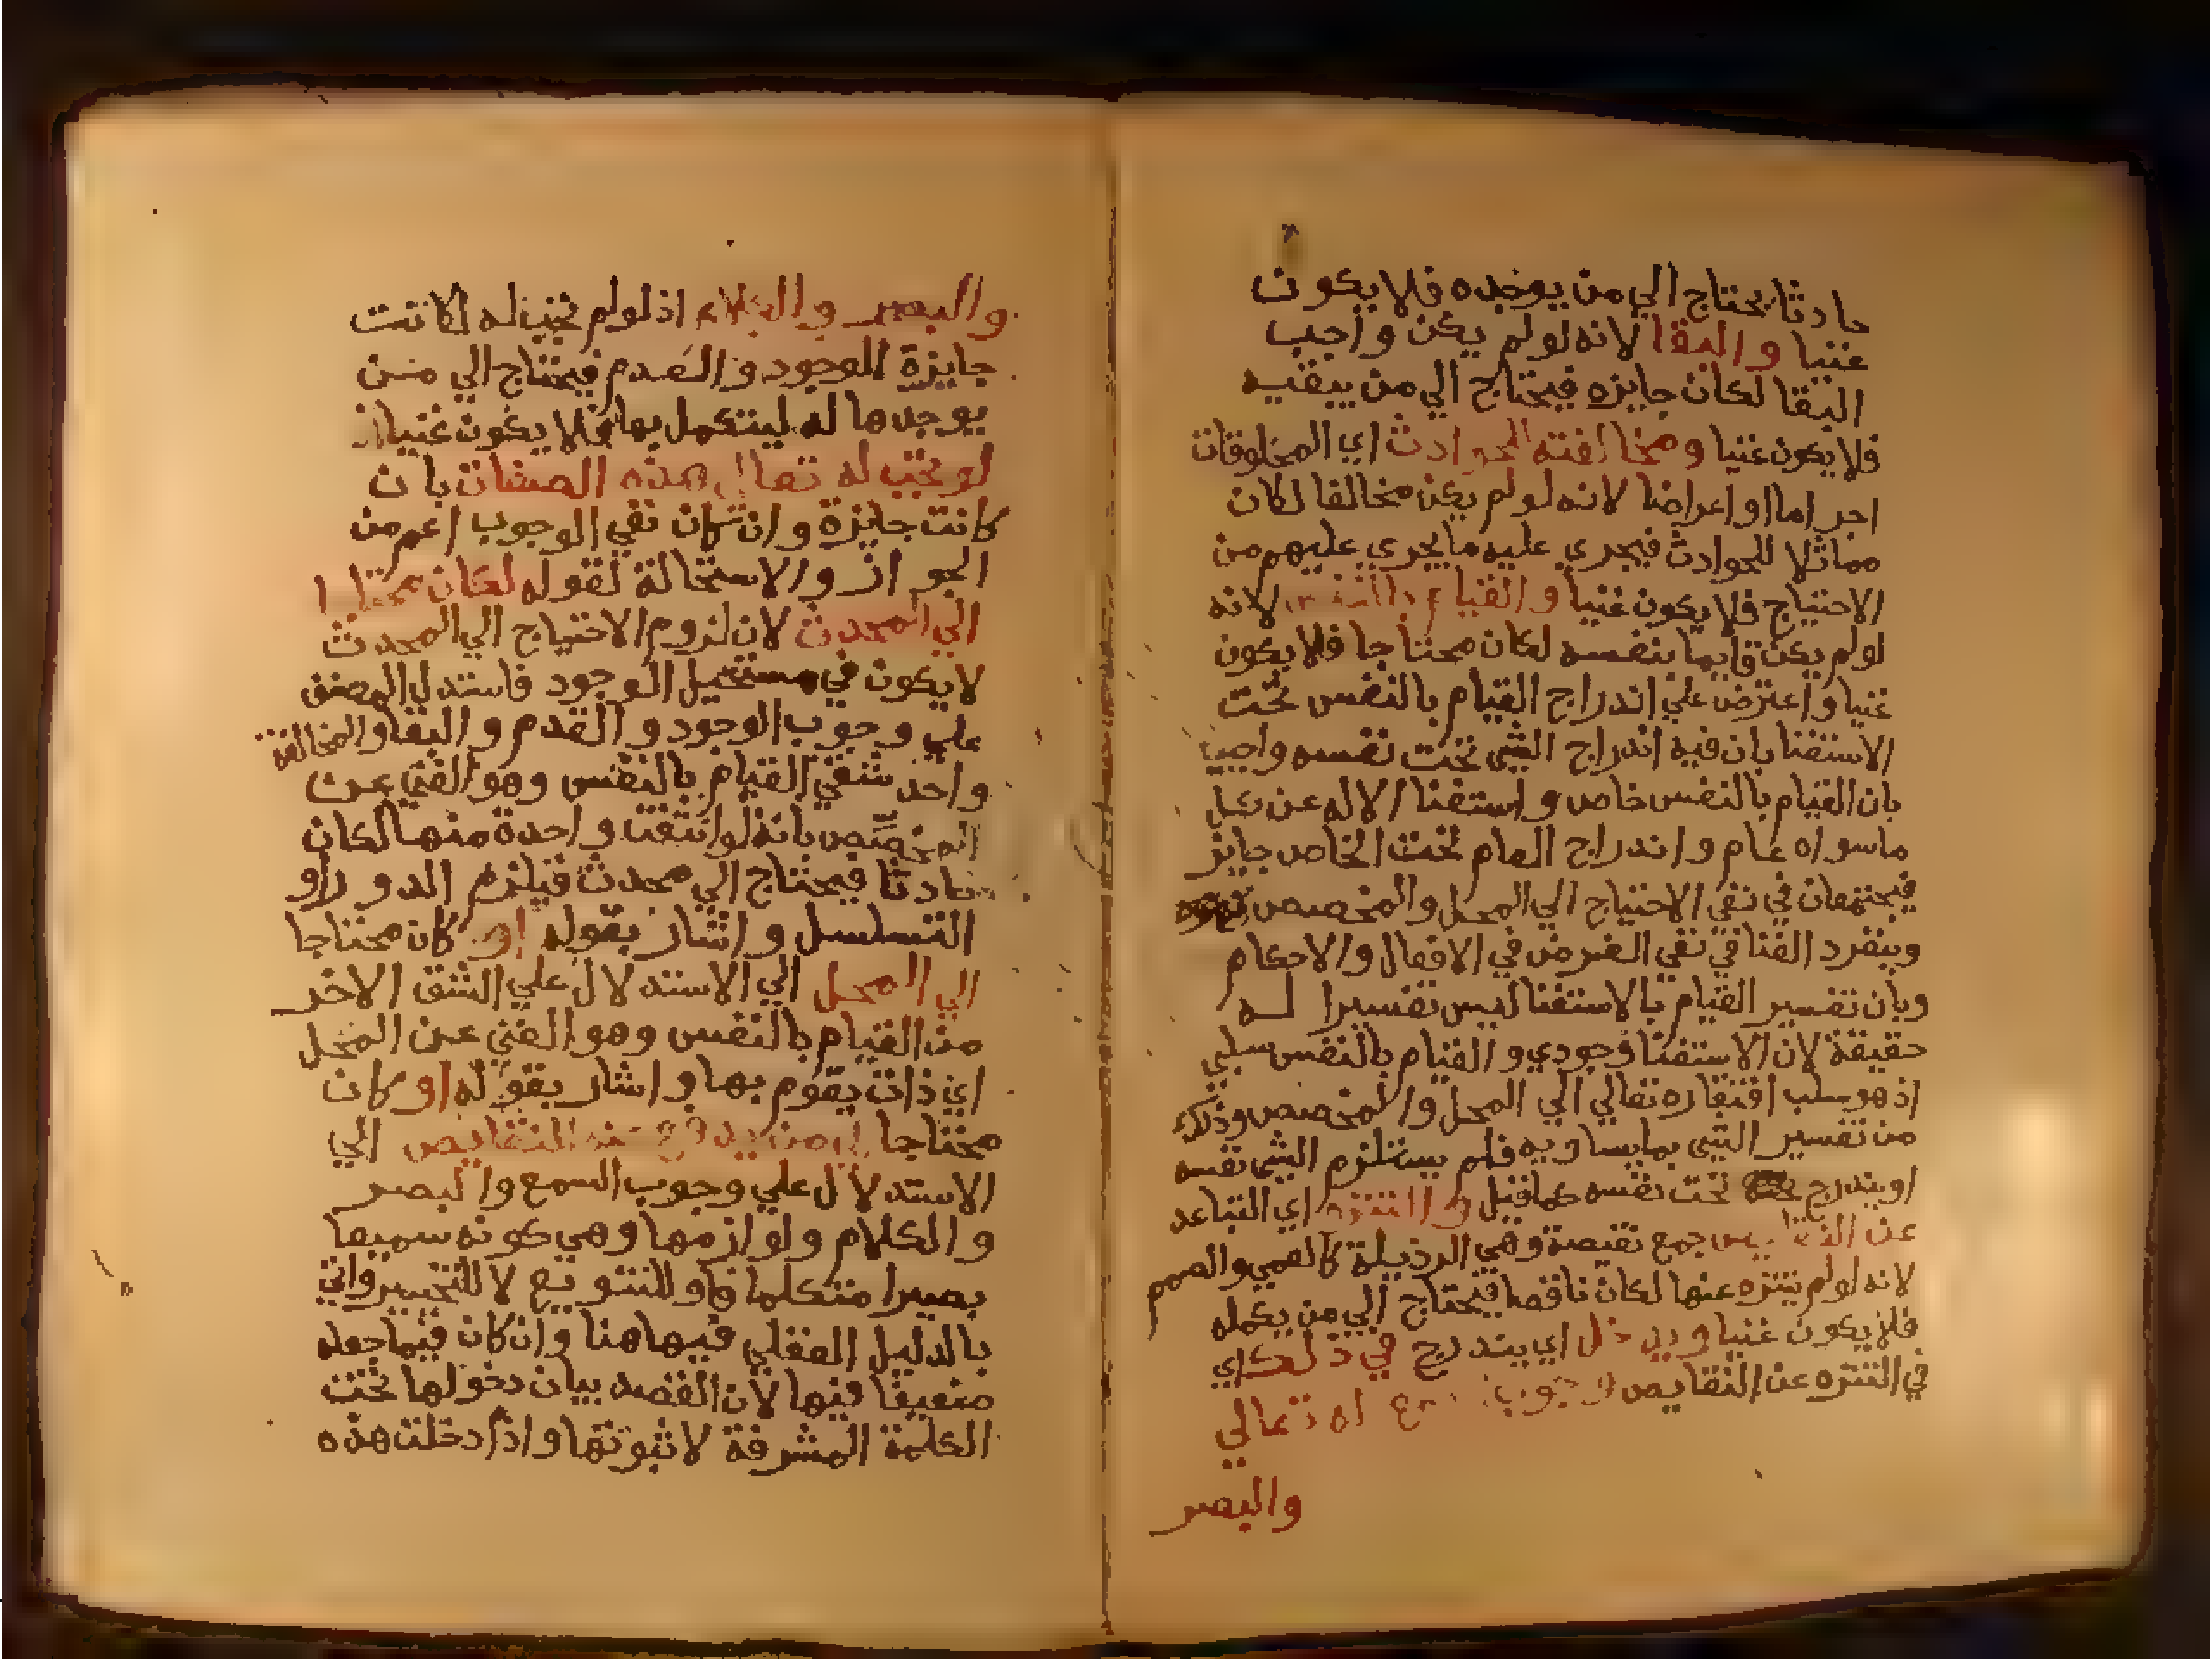 حادثا يحتاج الي من يوجده فلا يكون
غنيا والبقا لانه لو لم يكن واجب
البقا لكان جايزه فيحتاج الي من يبقيه
فلا يكون غنيا ومخالفته للحوادث اي المخلوقات
اجراما او اعراضا لانه لو لم يكن مخالفا لكان
مماثلا للحوادث فيجري عليه ما يجري عليهم من
الاحتياج فلا يكون غنيا والقيام بالنفس لانه
لو لم يكن قايما بنفسه لكان محتاجا فلا يكون
غنيا واعترض علي اندراج القيام بالنفس تحت
الاستغنا بان فيه اندراج الشي تحت نفسه واجيب
بان القيام بالنفس خاص واستغنا الاله عن كل
ما سواه عام واندراج العام تحت الخاص جايز
فيجتمعان في نفي الاحتياج الي المحل والمخصص
وينفرد الغنا في نفي الغرض في الافعال والاحكام
وبان تفسير القيام بالاستغنا ليس تفسيرا له
حقيقة لان الاستغنا وجودي والقيام بالنفس سلبي
اذ هو سلب افتقاره تعالي الي المحل والمخصص وذلك
من تفسير الشي بما يساويه فلم يستلزم الشي نفسه
او يندرج تحت نفسه كما قيل والتنزه اي التباعد
عن النقايص جمع نقيصة وهي الرذيلة كالعمي والصمم
لانه لو لم يتنزه عنها لكان ناقصا فيحتاج الي من يكمله
فلا يكون غنيا ويدخل اي يندرج في ذلك اي
في التنزه عن النقايص وجوب السمع له تعالي
والبصر
والبصر والكلام اذ لو لم تجب له لكانت
جايزة الوجود والعدم فيحتاج الي من
يوجدها له ليتكمل بها فلا يكون غنيا اذ
لو لم تجب له تعالي هذه الصفات بان
كانت جايزة وان كان نفي الوجوب اعم من
الجواز والاستحالة لقوله لكان محتاجا
الي المحدث لان لزوم الاحتياج الي المحدث
لا يكون في مستحيل الوجود فاستدل المصنف
علي وجوب الوجود والقدم والبقا والمخالفة
واحد شقي القيام بالنفس وهو الغني عن
المخصص بانه لو انتفت واحدة منها لكان
حادثا فيحتاج الي محدث فيلزم الدور او
التسلسل واشار بقوله او كان محتاجا
الي المحل الي الاستدلال علي الشق الاخر
من القيام بالنفس وهو الغني عن المحل
اي ذات يقوم بها واشار بقوله او كان
محتاجا الي من يدفع عنه النقايص الي
الاستدلال علي وجوب السمع والبصر
والكلام ولوازمها وهي كونه سميعا
بصيرا متكلما فاو للتنويع لا للتخيير واتي
بالدليل العقلي فيها هنا وان كان فيما جعله
ضعيفا فيها لان القصد بيان دخولها تحت
الكلمة المشرفة لا ثبوتها واذا دخلت هذه